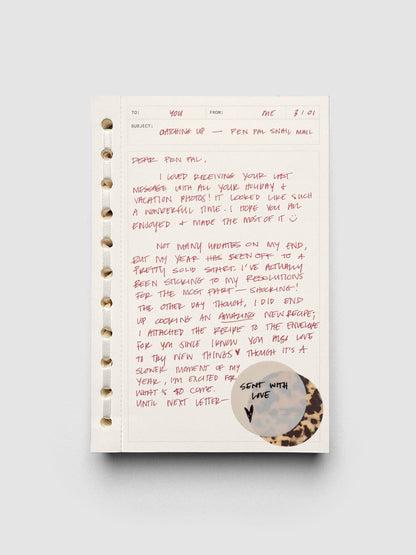 TO: YOU FROM: ME 3/01
SUBJECT: CATCHING UP — PEN PAL SNAIL MAIL
DEAR PEN PAL,
I LOVED RECEIVING YOUR LAST
MESSAGE WITH ALL YOUR HOLIDAY +
VACATION PHOTOS! IT LOOKED LIKE SUCH
A WONDERFUL TIME. I HOPE YOU ALL
ENJOYED + MADE THE MOST OF IT ☺
NOT MANY UPDATES ON MY END,
BUT MY YEAR HAS BEEN OFF TO A
PRETTY SOLID START. I'VE ACTUALLY
BEEN STICKING TO MY RESOLUTIONS
FOR THE MOST PART — SHOCKING!
THE OTHER DAY THOUGH, I DID END
UP COOKING AN AMAZING NEW RECIPE;
I ATTACHED THE RECIPE TO THE ENVELOPE
FOR YOU SINCE I KNOW YOU ALSO LOVE
TO TRY NEW THINGS ♥ THOUGH IT'S A
SLOWER MOMENT OF MY
YEAR, I'M EXCITED FOR
WHAT'S TO COME.
UNTIL NEXT LETTER—
SENT WITH
LOVE